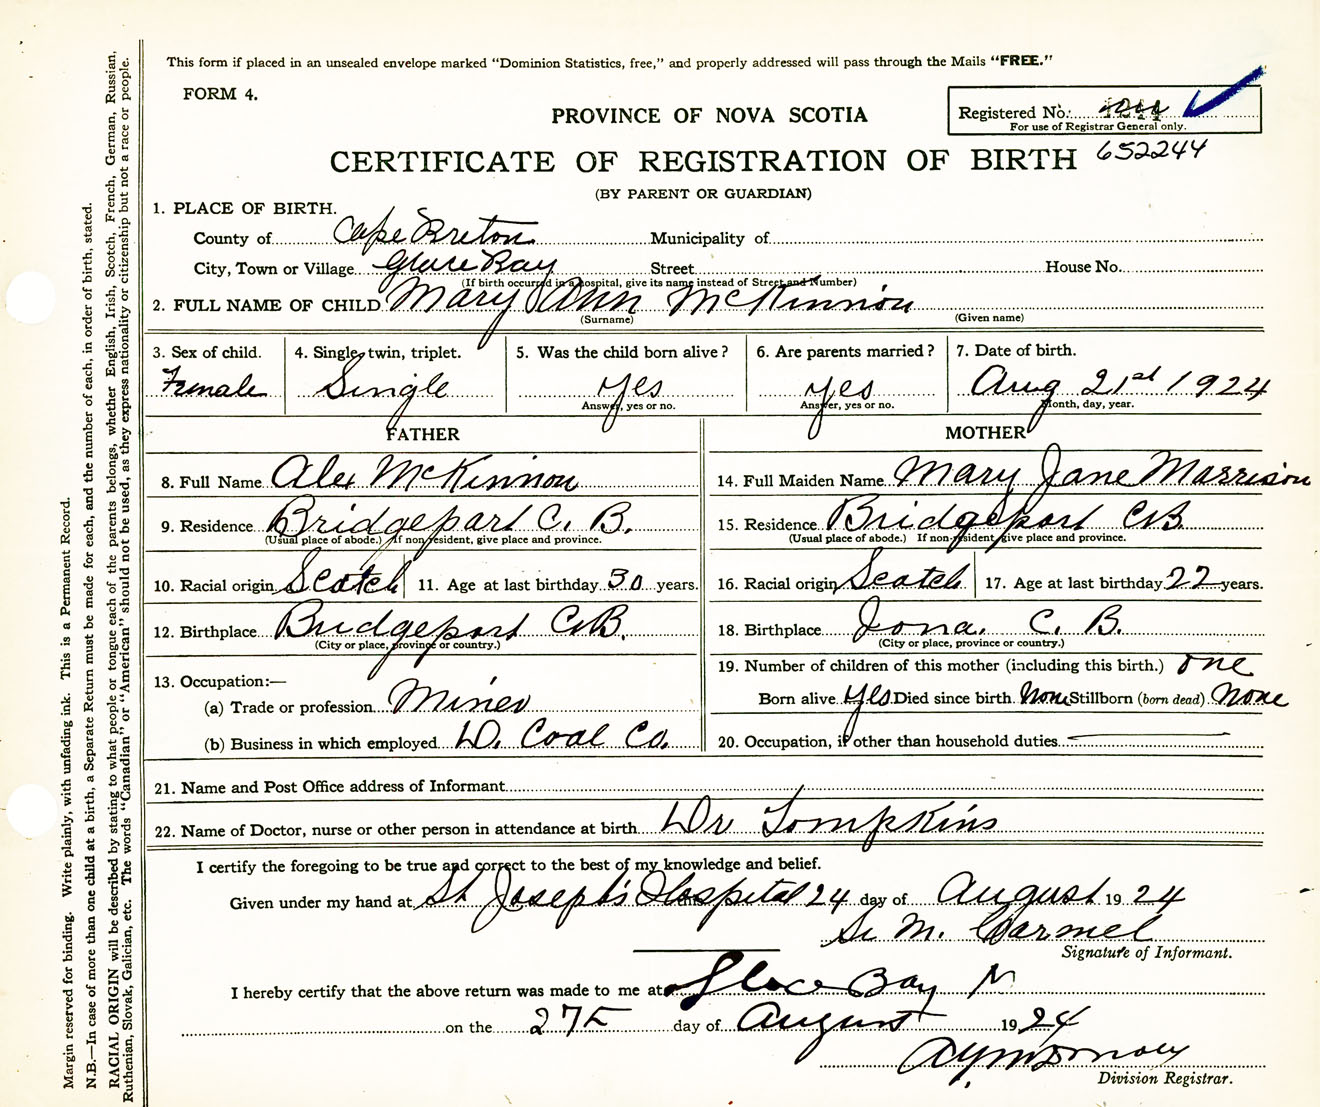 This form if placed in an unsealed envelope marked "Dominion Statistics, free," and properly addressed will pass through the Mails "FREE."
FORM 4.
PROVINCE OF NOVA SCOTIA
Registered No.
For use of Registrar General only.
CERTIFICATE OF REGISTRATION OF BIRTH 652244
(BY PARENT OR GUARDIAN)
1. PLACE OF BIRTH.
County of Cape Breton Municipality of
City, Town or Village Glace Bay Street House No.
(If birth occurred in a hospital, give its name instead of Street and Number)
2. FULL NAME OF CHILD Mary Ann McKinnon
(Surname) (Given name)
3. Sex of child. 4. Single, twin, triplet. 5. Was the child born alive? 6. Are parents married? 7. Date of birth.
Female Single Yes Yes Aug 21st 1924
Answer, yes or no. Answer, yes or no. Month, day, year.
FATHER MOTHER
8. Full Name Alex McKinnon 14. Full Maiden Name Mary Jane Morrison
9. Residence Bridgeport C. B. 15. Residence Bridgeport CB.
(Usual place of abode.) If non-resident, give place and province. (Usual place of abode.) If non-resident, give place and province.
10. Racial origin Scotch 11. Age at last birthday 30 years. 16. Racial origin Scotch 17. Age at last birthday 22 years.
12. Birthplace Bridgeport CB. 18. Birthplace Iona. C. B.
(City or place, province or country.) (City or place, province or country.)
13. Occupation:— 19. Number of children of this mother (including this birth.) one
(a) Trade or profession Miner Born alive yes Died since birth None Stillborn (born dead) None
(b) Business in which employed D. Coal Co. 20. Occupation, if other than household duties
21. Name and Post Office address of Informant
22. Name of Doctor, nurse or other person in attendance at birth Dr Tompkins
I certify the foregoing to be true and correct to the best of my knowledge and belief.
Given under my hand at St Joseph's Hospital 24 day of August 19 24
Sr M. Carmel
Signature of Informant.
I hereby certify that the above return was made to me at Glace Bay N
on the 27 day of August 19 24
Division Registrar.
Margin reserved for binding. Write plainly, with unfading ink. This is a Permanent Record.
N.B.—In case of more than one child at a birth, a Separate Return must be made for each, and the number of each, in order of birth, stated.
RACIAL ORIGIN will be described by stating to what people or tongue each of the parents belongs, whether English, Irish, Scotch, French, German, Russian,
Ruthenian, Slovak, Galician, etc. The words "Canadian" or "American" should not be used, as they express nationality or citizenship but not a race or people.